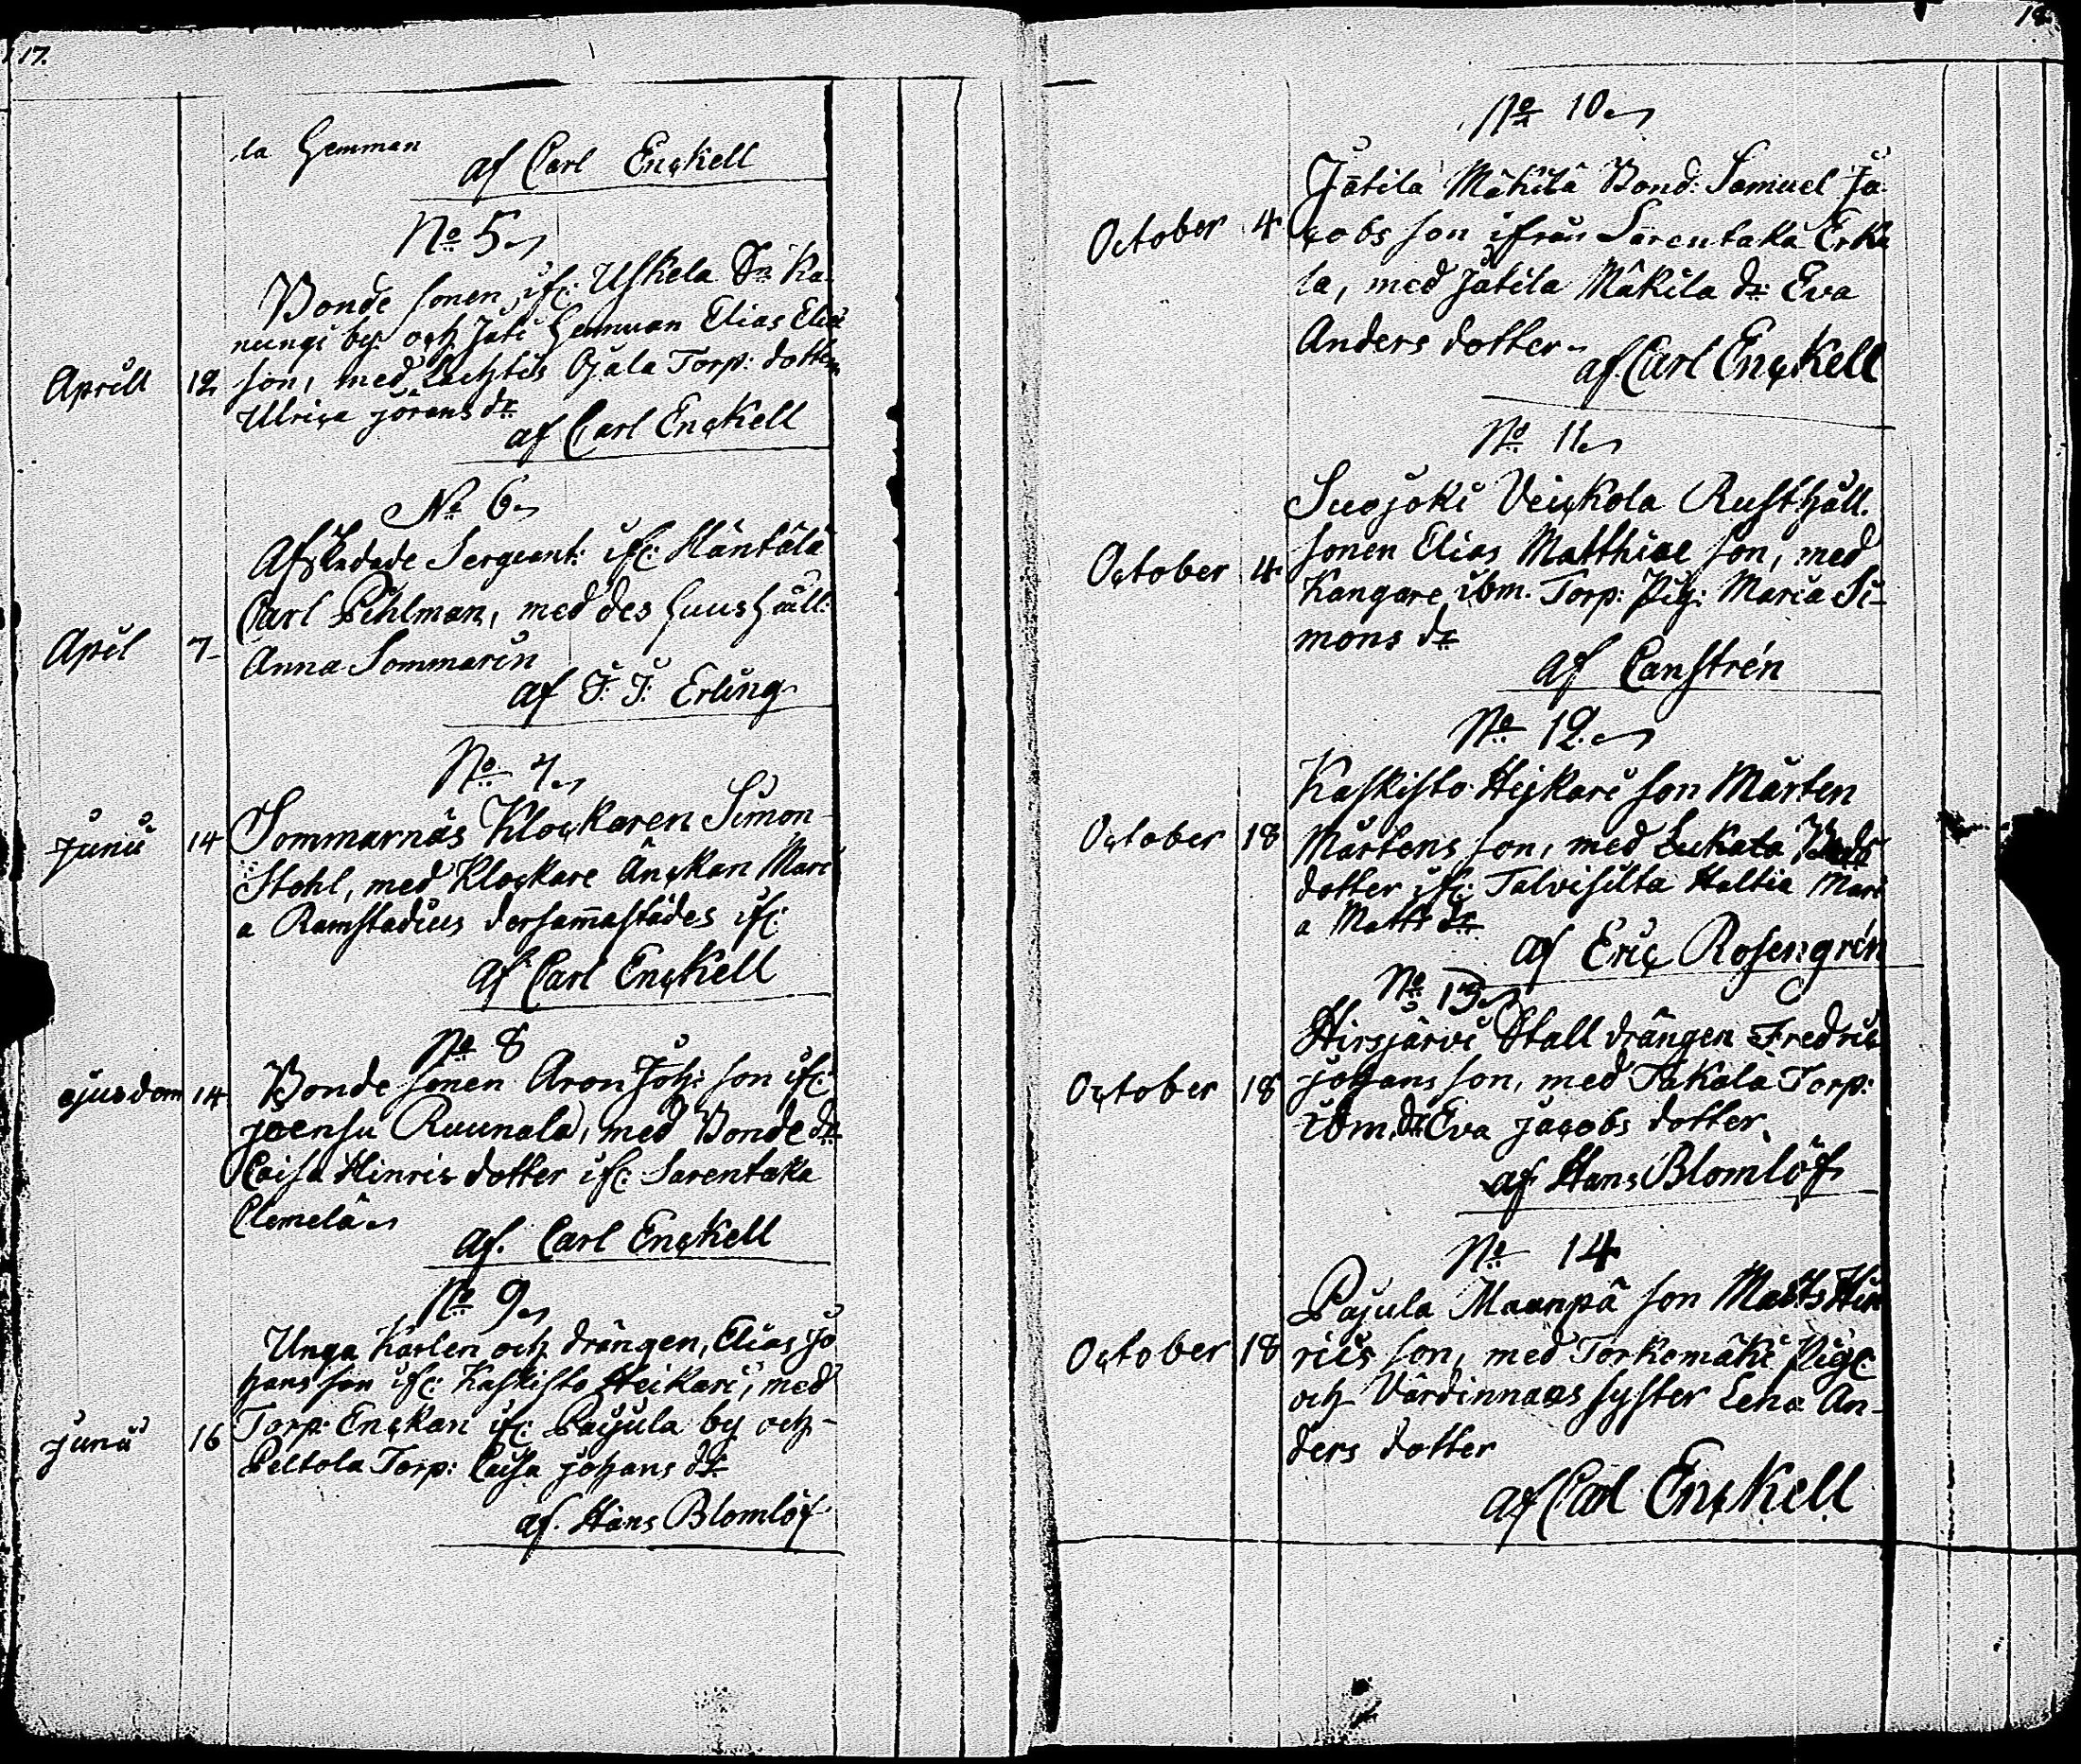 17.
la Hemman
af Carl Enckell
No 5
Bonde sonen ifr: Uskela Sn Ka-
nungi by och Jati Hemman Elias Elias
Aprill 12 son, med Lachtis Ojala Torp: dottern
Ulrica Jörans dr
af Carl Enckell
No 6
Afskedade Sergeant: ifr: Häntälä
Carl Pihlman, med des Huushåll:
Apil 7 Anna Sommarin
af F. J. Erling
No 7
Junii 14 Sommarnäs Klockaren Simon
Stohl, med Klockare Änckan Mari
a Ramstadius dersam̄astädes ifr:
af Carl Enckell
No 8
ejusdom 14 Bonde sonen Aron Joh: son ifr:
joensu Ruunala, med Bonde dr
Caisa Hinrics dotter ifr: Sarentaka
Clemelä
af. Carl Enckell
No 9
Unga Karlen och drängen, Elias Jo
hans son ifr: Kaskisto Heikari, med
Junii 16 Torp: Enckan ifr: Pajula by och
Peltola Torp: Caisa Johans dr
af. Hans Blomlöf
18
No 10
Jätilä Mäkilä Bond: Samuel Ja-
October 4 cobs son ifrån Sarentaka Erke
la, med Jätila Mäkila dr Eva
Anders dotter
af. Carl Enckell
No 11
Suojoki Veickola Rusthåll.
October 4 sonen Elias Matthiae son, med
Kangare ibm. Torp: Pig: Maria Si-
mons dr
af Canstrén
No 12.
Kaskisto Heikari son Mårten
October 18 Mårtens son, med Lukala
dotter ifr: Talvisilta Haltia Mari
a Matts dr
af Eric Rosengrén
No 13
Hirsjärvi Stall drängen Fredric
October 18 johans son, med Takala Torp:
ibm. dr Eva jacobs dotter.
af Hans Blomlöf
No 14
Pajula Maanpä son Matts Hin
October 18 rics son, med Torkomäki Pig:
och Värdinnans syster Lena An-
ders dotter
af Carl Enckell